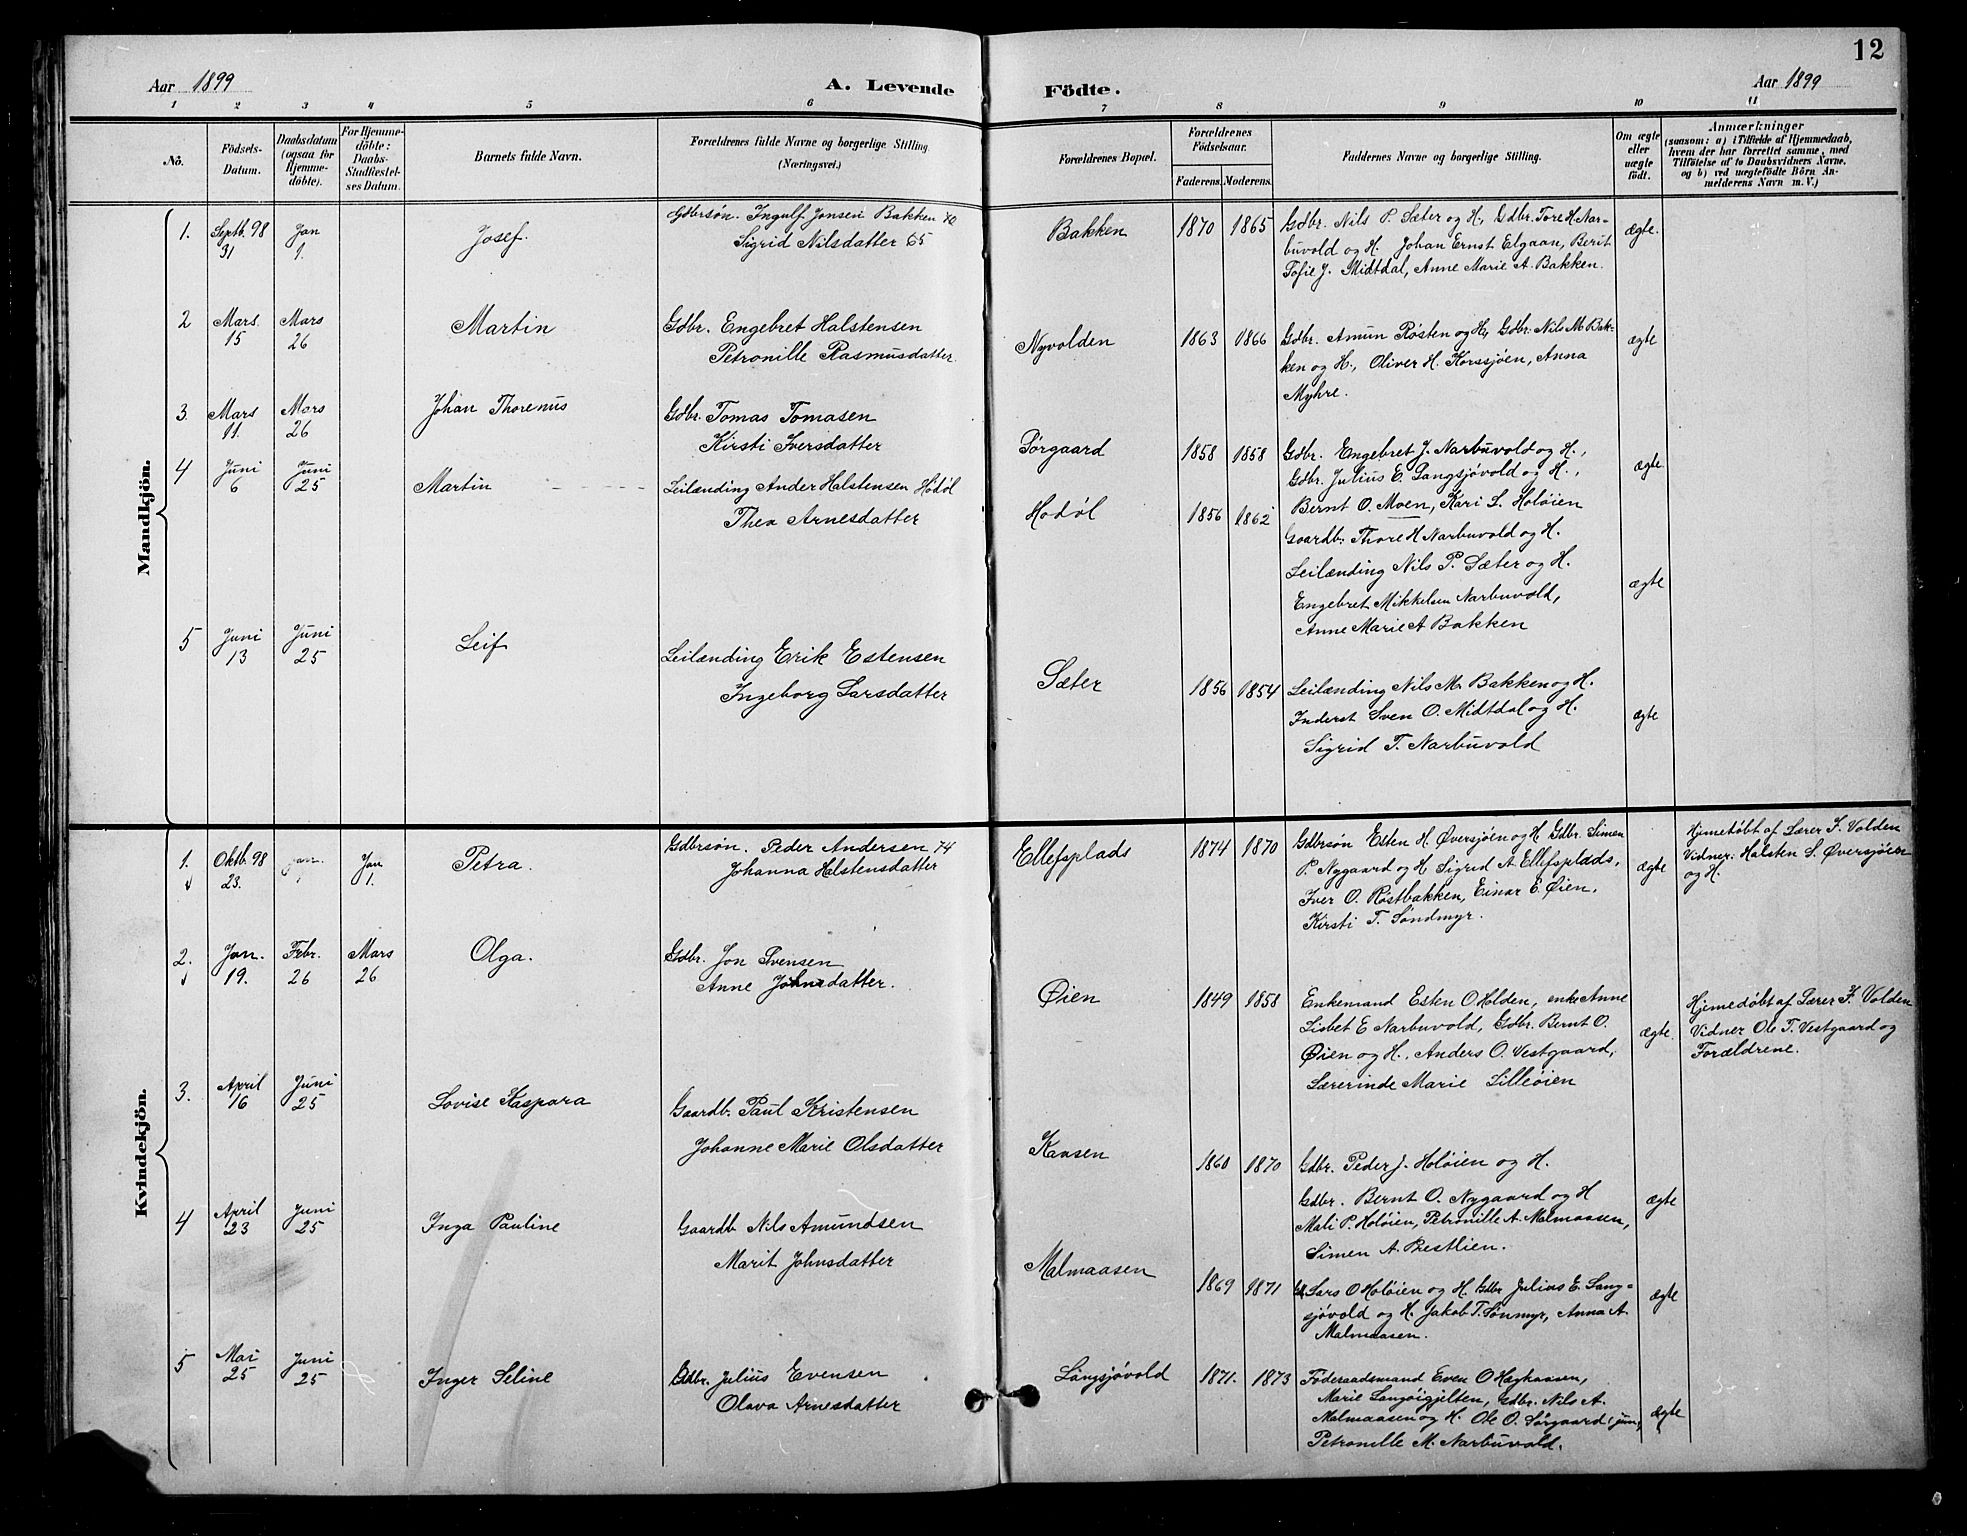 12
Aar 1899
A. Levende Födte.
Aar 1899
1 2 3 4 5 6 7 8 9 10 11
No.
Födsels-Datum.
Daabsdatum (ogsaa for Hjemme-döbte).
For Hjemme-döbte: Daabs-Stadfæstel-ses Datum.
Barnets fulde Navn.
Forældrenes fulde Navne og borgerlige Stilling. (Næringsvei.)
Forældrenes Bopæl.
Forældrenes Födselsaar.
Faderens. Moderens.
Faddernes Navne og borgerlige Stilling.
Om ægte eller uægte födt.
Anmærkninger
(saasom: a) i Tilfælde af Hjemmedaab, hvem der har forrettet samme, med Tilföielse af to Daabsvidners Navne, og b) ved uægtefödte Börn An-melderens Navn m. V.)
Mandkjön.
1. Septb. 98 31 Jan 1. Josef. Gdbrsøn. Ingulf Jonsen Bakken 70
Sigrid Nilsdatter 65
Bakken 1870 1865 Gdbr. Nils P. Sæter og H., Gdbr. Tore H. Nar-
buvold og H. Johan Ernst Elgaan, Berit
Sofie J. Midtdal, Anne Marie A. Bakken.
ægte.
2 Mars 15 Mars 26 Martin Gdbr. Engebret Halstensen
Petronille Rasmusdatter
Nyvolden 1863 1866 Gdbr. Amun Røsten og H., Gdbr. Nils M. Bak-
ken og H., Oliver H. Korssjøen, Anna
Myhre.
ægte
3. Mars 11. Mars 26 Johan Thorenus Gdbr. Tomas Tomasen
Kirsti Iversdatter
Sørgaard 1858 1858 Gdbr. Engebret J. Narbuvold og H.,
Gdbr. Julius E. Langsjøvold og H.,
Bernt O. Moen, Kari L. Holøien
ægte
4 Juni 6 Juni 25 Martin Leilænding Ander Halstensen Hodøl
Thea Arnesdatter
Hodøl 1856 1862 Gaardb. Thore H Narbuvold og H.
Leilænding Nils P. Sæter og H.
Engebret Mikkelsen Narbuvold,
Anne Marie A Bakken
ægte
5 Juni 13 Juni 25 Leif Leilænding Erik Estensen
Ingeborg Larsdatter
Sæter 1856 1854 Leilænding Nils M. Bakken og H.
Inderst Sven O. Midtdal og H.
Sigrid T. Narbuvold
ægte
Kvindekjön.
1. Oktb. 98 23. Jan 1 Jan 1. Petra. Gdbrsøn. Peder Andersen 74
Johanna Halstensdatter
Ellefsplads 1874 1870 Gdbrsøn Esten H. Øversjøen og H. Gdbr. Simen
P. Nygaard og H. Sigrid A. Ellefsplads,
Iver O. Røstbakken, Einar E. Øien,
Kirsti T. Søndmyr.
ægte
Hjemedøbt af Lærer F. Volden
Vidner: Halsten S. Øversjøen
og H.
2. Jan. 19. Febr. 26 Mars 26 Olga. Gdbr. Jon Svensen
Anne Johnsdatter.
Øien 1849 1858 Enkemand Esten O Holden, enke Anne
Lisbet E Narbuvold, Gdbr. Bernt O.
Øien og H., Anders O. Vestgaard,
Lærerinde Marie Lilleøien
ægte.
Hjemedøbt af Lærer F. Volden
Vidner Ole T. Vestgaard og
Forældrene.
3. April 16 Juni 25 Lovise Kaspara Gaardb. Paul Kristensen
Johanne Marie Olsdatter
Kaasen 1860 1870 Gdbr. Peder J. Holøien og H.
Gdbr. Bernt O. Nygaard og H
Mali P. Holøien, Petronille A. Malmaasen,
Simen A. Bestlien.
ægte
4 April 23 Juni 25 Inga Pauline Gaardb Nils Amundsen
Marit Johnsdatter
Malmaasen 1869 1871 Lars O Holøien og H. Gdbr Julius E. Lang-
sjøvold og H. Jakob T. Sønmyr, Anna A.
Malmaasen.
ægte
5 Mai 25 Juni 25 Inger Seline Gdbr. Julius Evensen
Olava Arnesdatter
Langsjøvold 1871. 1873 Føderaadsmand Even O Haghaasen,
Marie Langøigjelten, Gdbr. Nils A.
Malmaasen og H. Ole O. Sørgaard jun,
Petronille M. Narbuvold.
ægte